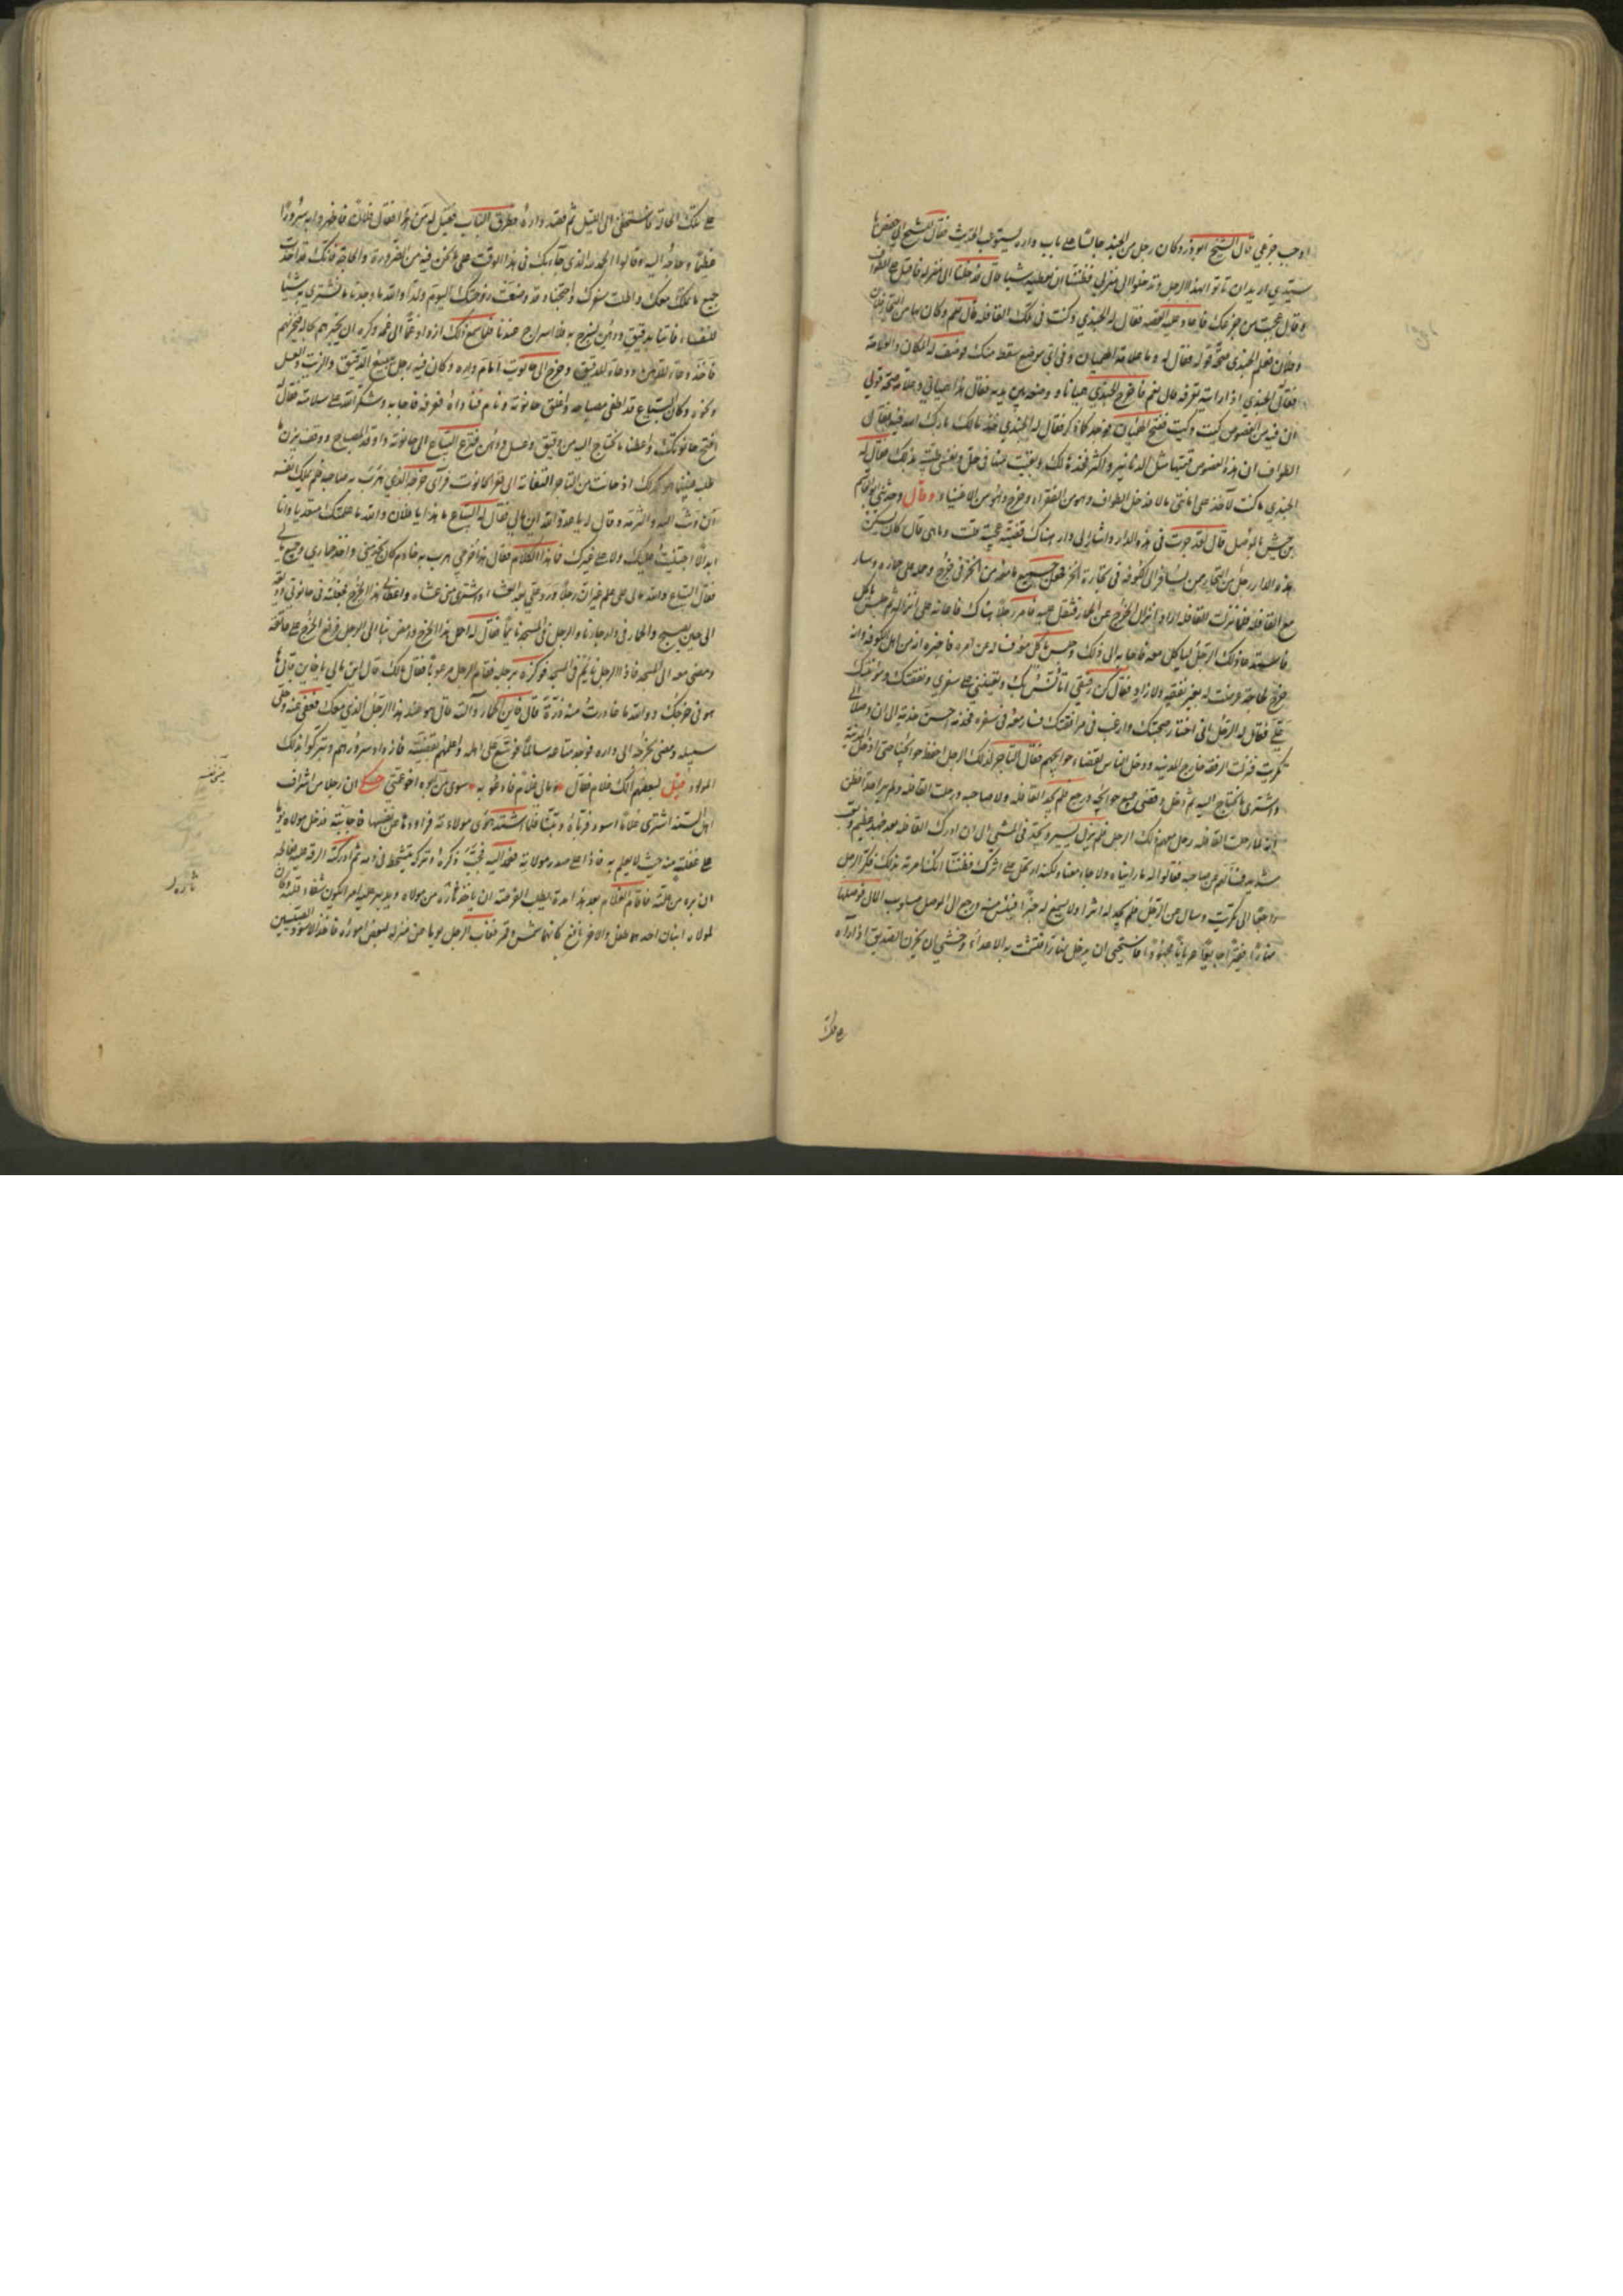 اوجب جزعي قال الشيخ ابو ذر وكان رجل من الجند جالسا على باب داره يستوعب الحديث فقال للشيخ
سيدي اريد ان تأتوا بهذا الرجل وتدخلوا الى منزلي فظننا انه يعطيه شيئا قال فدخلنا الى منزله فاقبل على الطواف
وقال عجبت من جزعك فاعاد عليه القصة فقال له الجندي وكنت في تلك القافلة قال نعم وكان بها من التجار فلان
وفلان فعلم الجندي صحة قوله فقال له وما علامة الهميان وفي اي موضع سقط منك فوصف له المكان والعلامة
فقال الجندي اذا رايته تعرفه قال نعم فاخرج الجندي هميانا ووضعه بين يديه فقال هذا همياني وعلامة صحة قولي
ان فيه من الفصوص كيت وكيت ففتح الهميان فوجد كما ذكر فقال له الجندي خذ مالك بارك الله فيه فقال
الطواف ان هذه الفصوص قيمتها مثل الدنانير واكثر فخذ ذلك وابقيت منها في حل ونفسي طيبة بذلك فقال له
الجندي ما كنت لآخذ على امانتي مالا فدخل الطواف وهو من الفقراء وخرج وهو من الاغنياء وقال وحدثني ابو القاسم
بن حبيش بالموصل قال لقد جرت في هذه الدار واشار الى دار هناك قضية عجيبة قلت وما هي قال كان يسكن
هذه الدار رجل من التجار ممن يسافر الى الكوفة في تجارة الخز فجعل جميع ما معه من الخز في خرج وحمله على حماره وسار
مع القافلة فلما نزلت القافلة اراد انزال الخرج عن الحمار فثقل عليه فامر رجلا هناك فاعانه على انزاله ثم جلس ياكل
فاستدعا ذلك الرجل لياكل معه فاجابه الى ذلك وجلس ياكل معه فساله عن امره فاخبره انه من اهل الكوفة وانه
خرج لحاجة عرضت له بغير نفقة ولا زاد فقال كن رفيقي آنس بك وتعينني على سفري ونفقتك ومؤنتك
علي فقال له الرجل اني اختار صحبتك وارغب في مرافقتك فسار معه في سفره فخدمه احسن خدمة الى ان وصلا الى
تكريت فنزلت الرفقة خارج المدينة ودخل الناس لقضاء حوائجهم فقال التاجر لذلك الرجل احفظ حوائجنا حتى ادخل المدينة
واشتري ما نحتاج اليه ثم دخل وقضى جميع حوائجه ورجع فلم يجد القافلة ولا صاحبه ورحلت القافلة ولم ير احدا فظن
انه لما رحلت القافلة رحل معهم ذلك الرجل فلم يزل يسير ويجد في المشي الى ان ادرك القافلة بعد جهد عظيم وتعب
شديد فسألهم عن صاحبه فقالوا له ما رايناه ولا جاء معنا ولكنه ارتحل على اثرك فظننا انك امرته بذلك فكر الرجل
راجعا الى تكريت وسال عن الرجل فلم يجد له اثرا ولا سمع له خبرا فيئس منه ورجع الى الموصل مسلوب المال فوصلها
نهارا فقيرا جايعا عريانا مجهودا فاستحيى ان يدخل نهارا فتشمت به الاعداء وخشي ان يحزن الصديق اذا رآه
على تلك
على تلك الحالة فاستخفى الى الليل ثم قصد داره وطرق الباب فقيل له من هذا فقال فلان فاظهروا له سرورا
عظيما وحاجة اليه وقالوا الحمد لله الذي جاء بك في هذا الوقت على ما نحن فيه من الضرورة والحاجة فانك قد اخذت
جميع مالك معك واطلت سفرك واحتجنا وقد وضعت زوجتك اليوم ولدا والله ما وجدنا ما نشتري به شيئا
للنفساء فاتنا بدقيق ودهن نسرج به فلا سراج عندنا فلما سمع ذلك ازداد غما الى غمه وكره ان يخبرهم بحاله فيحزنهم
فاخذ وعاء للدهن ووعاء للدقيق وخرج الى حانوت امام داره وكان فيه رجل يبيع الدقيق والزيت والعسل
ونحوه وكان البياع قد اطفى مصباحه واغلق حانوته ونام فناداه فعرفه فاجابه وشكر الله على سلامته فقال
افتح حانوتك واعطنا ما نحتاج اليه من دقيق وعسل ودهن فنزل البياع الى حانوته واوقد المصباح ووقف يزن ما
طلب فبينما هو كذلك اذ حانت من التاجر التفاتة الى قعر الحانوت فرآى خرجه الذي هرب به صاحبه فلم يملك نفسه
ان وثب اليه والتزمه وقال له يا عدو الله اين مالي فقال له البياع ما هذا يا فلان والله ما علمتك متعديا وانا
ابدا لا اجتليت عليك ولا على غيرك فما هذا الكلام فقال هذا خرجي هرب به خادم كان يخدمني واخذ حماري وجميع مالي
فقال البياع والله مالي على علم غير ان رجلا ورد علي بعد العشاء واشترى مني عشاه واعطاني هذا الخرج فجعلته في حانوتي وديعة
الى حين يصبح والحمار في دار جارنا والرجل في المسجد نايما فقال له احمل هذا الخرج وامض بنا الى الرجل فرفع الخرج على عاتقه
ومضى معه الى المسجد فاذا الرجل نايم في المسجد فوكزه برجله فقام الرجل مرعوبا فقال مالك قال اين مالي يا خاين قال ها
هو في خرجك ووالله ما غادرت منه ذرة قال فاين الحمار وآلته قال هو عند هذا الرجل الذي معك فعفى عنه وخلى
سبيله ومضى بخرجه الى داره فوجد متاعه سالما فوسع على اهله واعلمهم بقصته فازداد سرورهم وتبركوا بذلك
المولود قيل لبعضهم الك غلام فقال وما لي غلام فادعو به سوى من ابوه اخو عمتي حكي ان رجلا من اشراف
اهل السند اشترى غلاما اسود فرباه وتبناه فلما اشتد هوى مولاته فراودها عن نفسها فاجابته فدخل مولاه يوما
على غفلة منه حيث لا يعلم به فاذا هو على صدر مولاته فعمد اليه فجب ذكره وتركه يتشحط في دمه ثم ادركته الرقة عليه فعالجه
الى ان بره من علته فاقام الغلام بعد هذا مدة يطلب الفرصة ان ياخذ ثاره من مولاه ويدبر عليه امرا يكون شفاء قلبه وكان
لمولاه ابنان احدهما طفل والاخر يافع كانهما شمس وقمر فغاب الرجل يوما عن منزله لبعض اموره فاخذ الاسود الصبيين